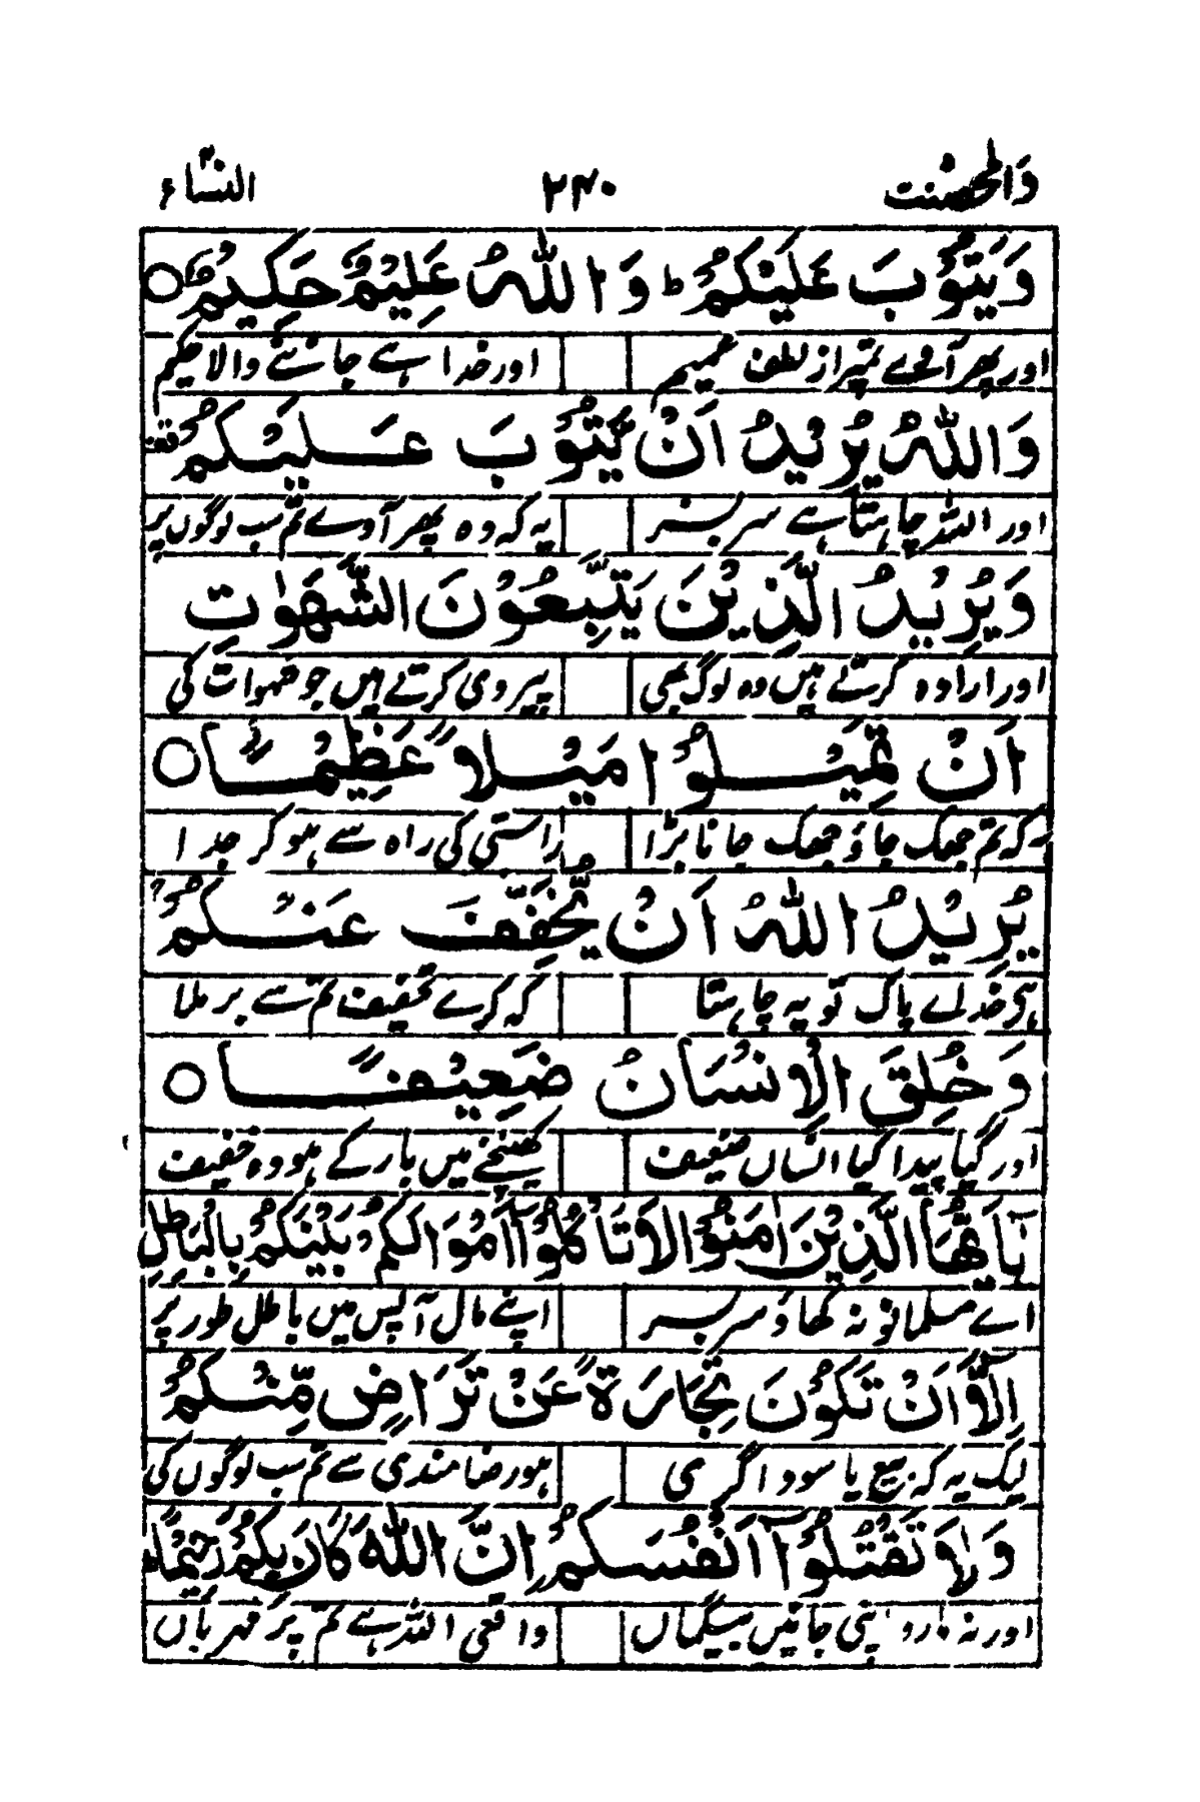 وَالمحصنت ۲۴۰ النساء ۴
وَيَتُوْبَ عَلَيْكُمْ ط وَ اللهُ عَلِيْمٌ حَكِيْمٌ ○
اور پھر آوے تمپر از لطف عمیم اور خدا ہے جاننے والا حکیم
وَاللهُ يُرِيْدُ اَنْ يَّتُوْبَ عَلَيْكُمْ قف
اور اللہ چاہتا ہے سربسر یہ کہ وہ پھر آوے تم سب لوگوں پر
وَيُرِيْدُ الَّذِيْنَ يَتَّبِعُوْنَ الشَّهَوٰتِ
اور ارادہ کرتے ہیں وہ لوگ بھی پیروی کرتے ہیں جو شہوات کی
اَنْ تَمِيْلُوْا مَيْلًا عَظِيْمًا ○
کہ تم جھک جاؤ جھک جانا بڑا راستی کی راہ سے ہو کر جدا
يُرِيْدُ اللهُ اَنْ يُّخَفِّفَ عَنْكُمْ ج
ہی خدائے پاک تو یہ چاہتا کہ کرے تخفیف تم سے بر ملا
وَخُلِقَ الْاِنْسَانُ ضَعِيْفًا ○
اور گیا پیدا کیا انساں ضعیف کھینچنے میں بار کے ہو وہ خفیف
يٰٓاَيُّهَا الَّذِيْنَ اٰمَنُوْا لَا تَاْكُلُوْٓا اَمْوَالَكُمْ بَيْنَكُمْ بِالْبَاطِلِ
اے مسلمانو نہ کھاؤ سربسر اپنے مال آپس میں باطل طور پر
اِلَّآ اَنْ تَكُوْنَ تِجَارَةً عَنْ تَرَاضٍ مِّنْكُمْ
لیک یہ کہ بیع یا سوداگری ہو رضامندی سے تم سب لوگوں کی
وَلَا تَقْتُلُوْٓا اَنْفُسَكُمْ اِنَّ اللهَ كَانَ بِكُمْ رَحِيْمًا
اور نہ مارو اپنی جانیں بیگماں واقعی اللہ ہے تم پر مہرباں